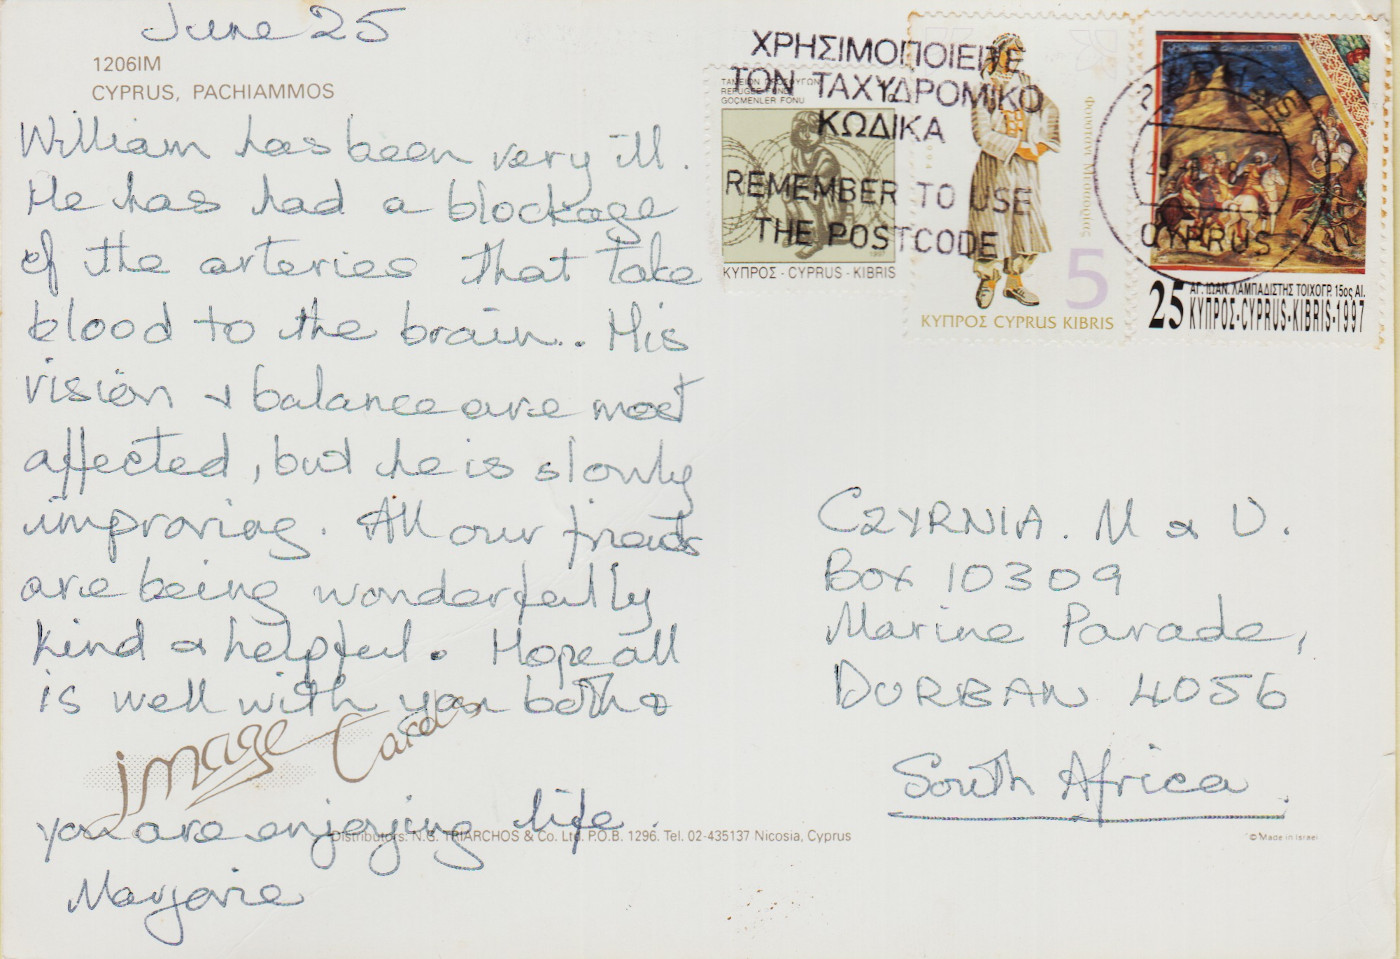 June 25
1206IM
CYPRUS, PACHIAMMOS
William has been very ill.
He has had a blockage
of the arteries that take
blood to the brain.. His
vision & balance are most
affected, but he is slowly
improving. All our friends
are being wonderfully
kind & helpful. Hope all
is well with you both &
Image Cards
you are enjoying life.
Marjorie
Distributors: N.G. TRIARCHOS & Co. Ltd. P.O.B. 1296. Tel. 02-435137 Nicosia, Cyprus
© Made in Israel
ΧΡΗΣΙΜΟΠΟΙΕΙΤΕ
ΤΟΝ ΤΑΧΥΔΡΟΜΙΚΟ
ΚΩΔΙΚΑ
REMEMBER TO USE
THE POSTCODE
REFUGEE FUND
GÖÇMENLER FONU
1997
ΚΥΠΡΟΣ - CYPRUS - KIBRIS
5
ΚΥΠΡΟΣ CYPRUS KIBRIS
CYPRUS
25 ΑΓ. ΙΩΑΝ. ΛΑΜΠΑΔΙΣΤΗΣ ΤΟΙΧΟΓΡ. 15ος ΑΙ.
ΚΥΠΡΟΣ-CYPRUS-KIBRIS-1997
CZYRNIA. M & V.
Box 10309
Marine Parade,
DURBAN 4056
South Africa.